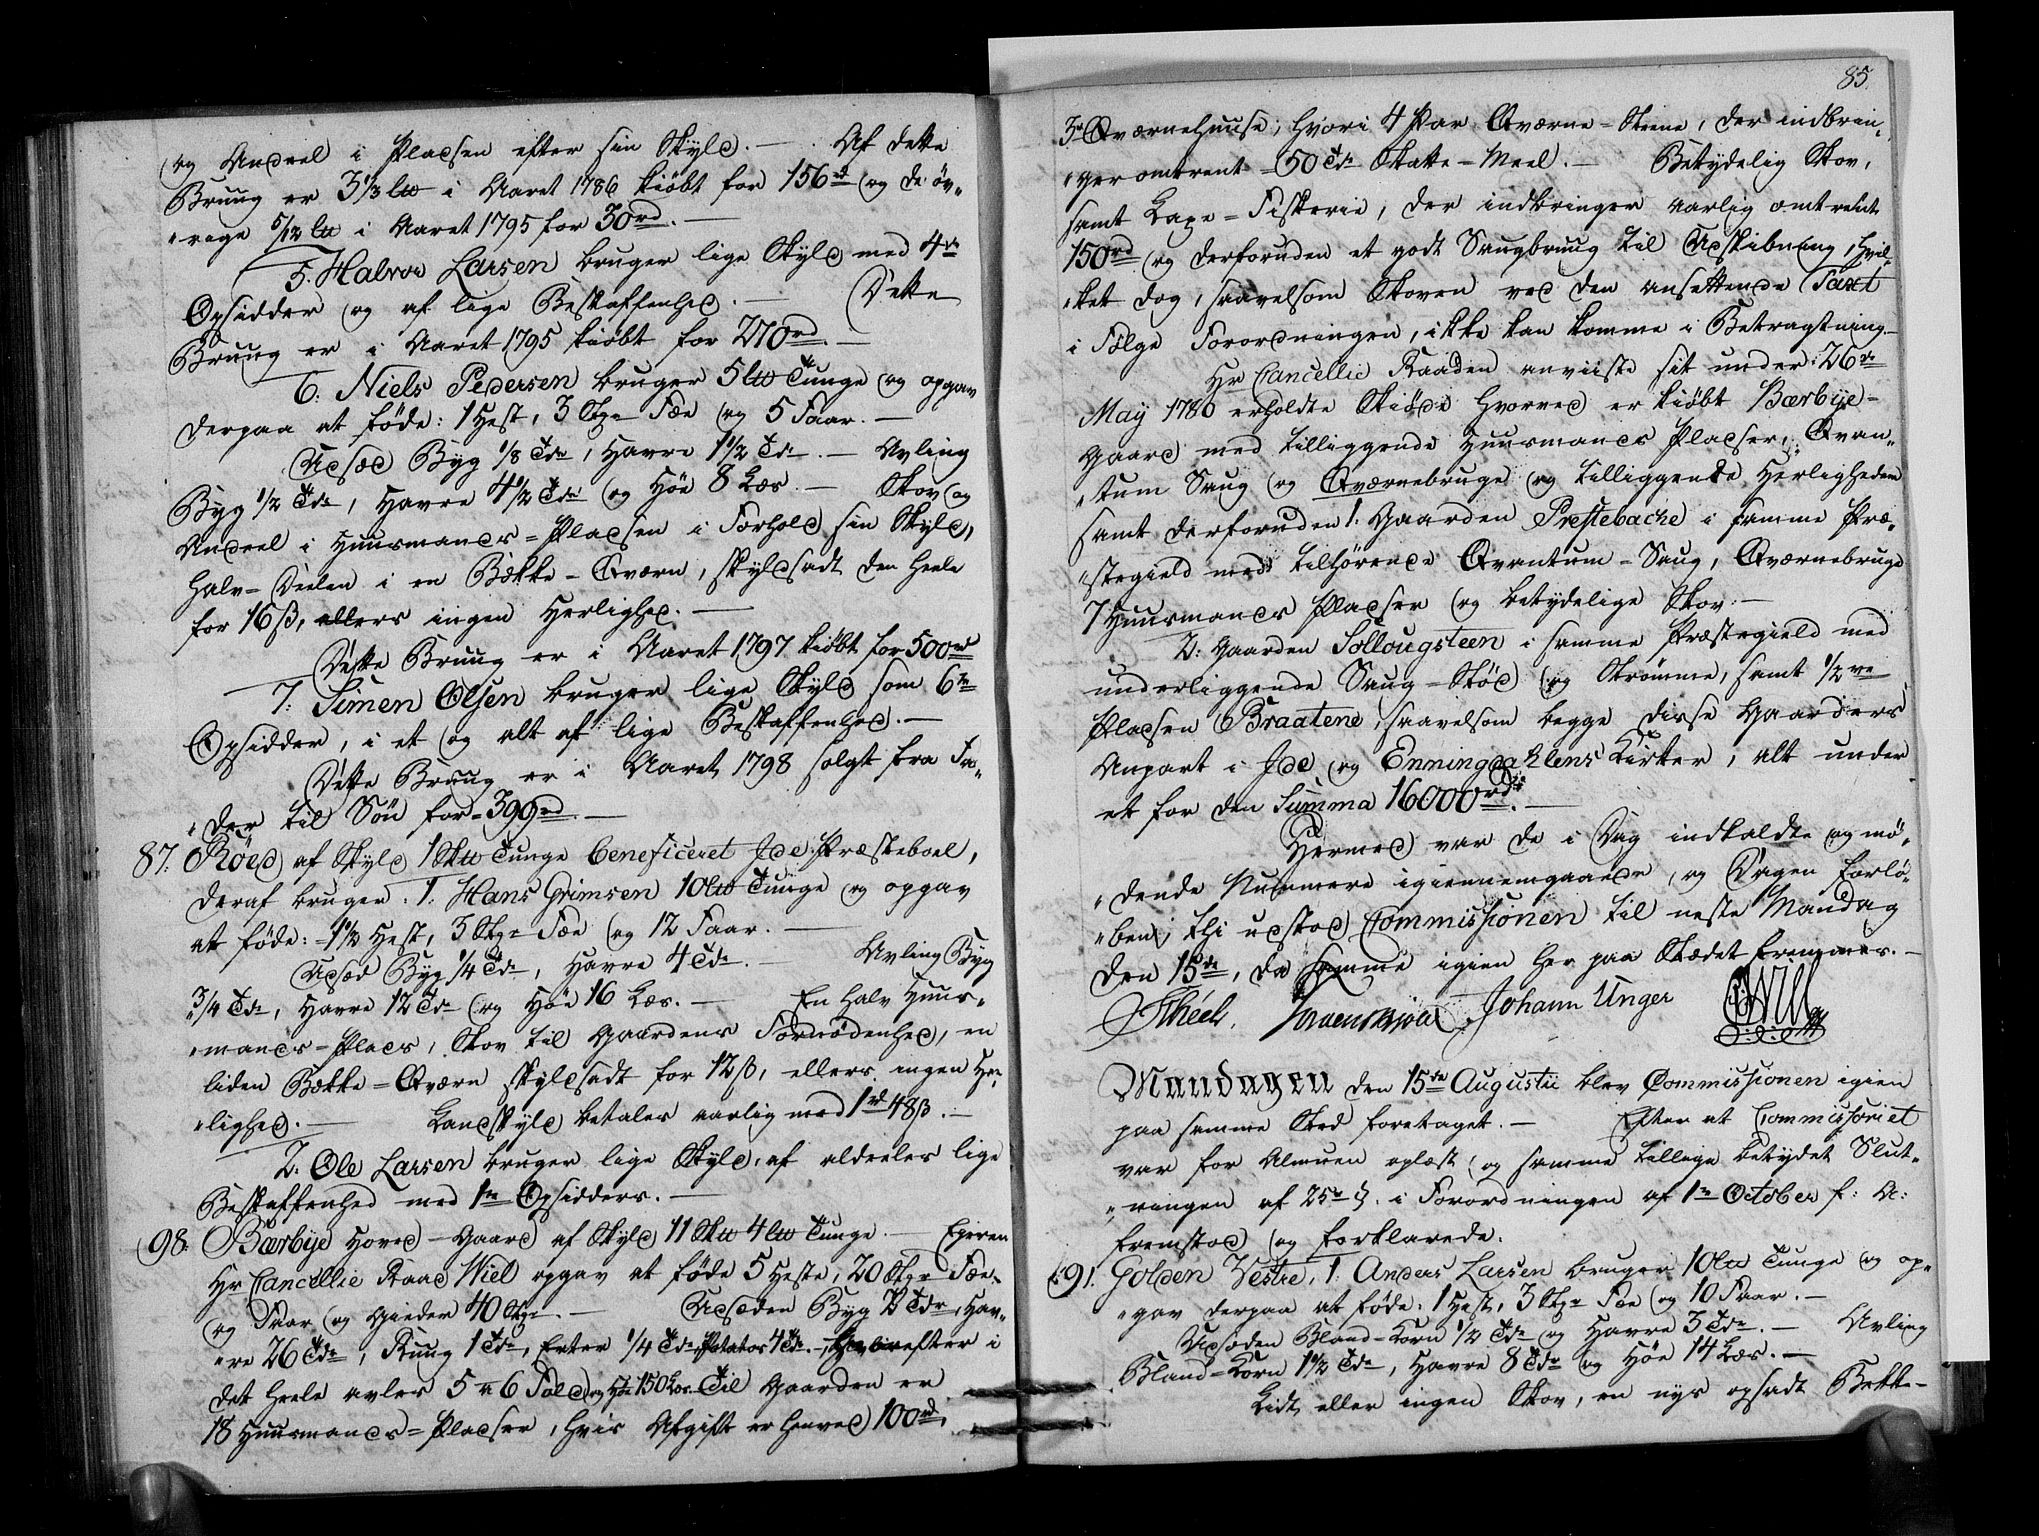 og Andeel i Pladsen efter sin Skyld. — Af dette
Bruug er 3 1/3 L℔ i Aaret 1786 kiøbt for 156 rd og de øv„
„rige 5/12 L℔ i Aaret 1795 for 30 rd. —
5. Halvor Larsen bruger lige Skyld med 4de
Opsidder og af lige Beskaffenhed. — Dette
Bruug er i Aaret 1795 kiøbt for 270 rd. —
6. Niels Pedersen bruger 5 L℔ Tunge og opgav
derpaa at føde: 1 Hest, 3 Stkr Fæe og 5 Faar. —
Udsæd Byg 1/8 Tde, Havre 1 1/2 Tde. — Avling
Byg 1/2 Tde, Havre 4 1/2 Tde og Høe 8 Læs. — Skov og
Andeel i Huusmands-Pladsen i Forhold sin Skyld,
halv-Deelen i en Bække-Qværn, skyldsadt den heele
for 16 ß, ellers ingen Herlighed. —
Dette Bruug er i Aaret 1797 kiøbt for 500 rd
7. Simen Olsen bruger lige Skyld som 6te
Opsidder, i et og alt af lige Beskaffenhed. —
Dette Bruug er i Aaret 1798 solgt fra Fa„
„der til Søn for 399 rd. —
87. Röed af Skyld 1 Sk℔ Tunge beneficeret Jde Præsteboel,
deraf bruger: 1. Hans Grimsen 10 L℔ Tunge og opgav
at føde: 1 1/2 Hest, 3 Stkr Fæe og 12 Faar. —
Udsæd Byg 1/4 Tde, Havre 4 Tde. — Avling Byg
3/4 Tde, Havre 12 Tde og Høe 16 Læs. — En halv Huus„
„mands-Plads, Skov til Gaardens Fornødenhed, en
liden Bække-Qværn skyldsadt for 12 ß, ellers ingen Her„
„lighed. — Landskyld betales aarlig med 1 rd 48 ß. —
2. Ole Larsen bruger lige Skyld, af aldeeles lige
Beskaffenhed med 1te Opsidders. —
98. Bærbye Hoved-Gaard af Skyld 11 Sk℔ 4 L℔ Tunge. — Ejeren
Hr Cancellie Raad Wiel opgav at føde 5 Heste, 20 Stkr Fæe
og Faar og Gieder 40 Stkr. — Udsæden Byg 2 Tdr, Hav„
„re 26 Tdr, Ruug 1 Tde, Erter 1/4 Tde, Potatos 4 Tdr. — Herefter i
det heele avles 5 a 6 Fold og Høe 150 Læs. Til Gaarden er
18 Huusmands-Pladser, hvis Afgift er henved 100 rd,
85.
3de Qværnehuuse, hvori 4 Par Qværne-Steene, der indbrin„
„ger omtrent 50 Tdr Skatte-Meel. — Betydelig Skov,
samt Laxe-Fiskerie, der indbringer aarlig omtrent
150 rd og derforuden et godt Saugbruug til Udskibning, hvil„
„ket dog, saavelsom Skoven ved den ansettende Taxt
i Følge Forordningen, ikke kan komme i Betragtning —
Hr Cancellie Raaden anviiste sit under 26de
May 1780 erholdte Skiøde hvorved er kiøbt Bærbye-
Gaard med tilliggende Huusmands Pladser, Qvan„
„tum Saug og Qværnebruge og tilliggende Herligheder
samt derforuden 1. Gaarden Prestebache i samme Præ„
„stegield med tilhørende Qvantum-Saug, Qværnebruge
7 Huusmands Pladser og betydelige Skov. —
2. Gaarden Sollougsteen i samme Præstegield med
underliggende Saug-Stød og Strømme, samt 1/2ve
Pladsen Braatene, saavelsom begge disse Gaarders
Anpart i Jde og Enningdahlens Kirker, alt under
et for den Summa 16000 rdr. —
Hermed var de i Dag indkaldte og mø„
„dende Nummere igiennemgaaede, og Dagen forlø„
„ben, thi udstod Commissionen til neste Mandag
den 15de, da samme igien her paa Stædet fremmes. —
Johann Unger
Mandagen den 15de Augustii blev Commissionen igien
paa samme Sted foretaget. — Efter at Commissoriet
var for Almuen oplæst og samme tillige betydet Slut„
„ningen af 25de §. i Forordningen af 1te October f: A:
fremstod og forklarede.
91. Golden Vestre, 1. Anders Larsen bruger 10 L℔ Tunge og op„
„gav derpaa at føde: 1 Hest, 3 Stkr Fæe og 10 Faar. —
Udsæden Bland-Korn 1/2 Tde og Havre 3 Tdr. — Avling
Bland-Korn 1 1/2 Tde, Havre 8 Tdr og Høe 14 Læs. —
Lidt eller ingen Skov, en nys opsadt Bekke-